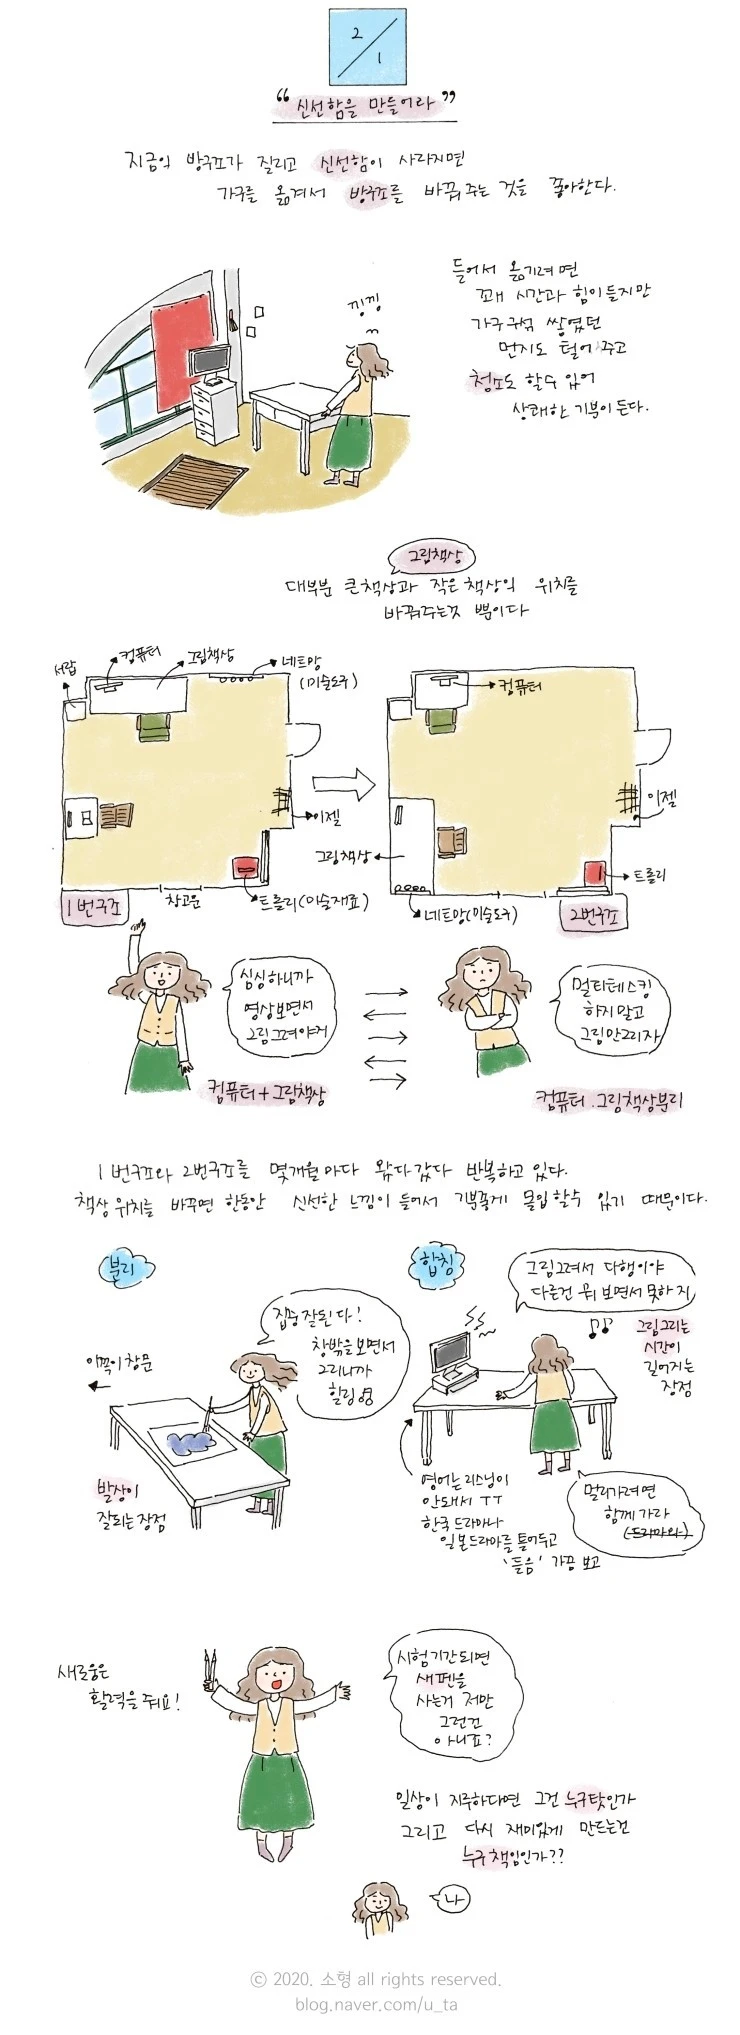 2/1
“신선함을 만들어라”
지금의 방구조가 질리고 신선함이 사라지면
가구를 옮겨서 방구조를 바꿔주는 것을 좋아한다.
들어서 옮기려면
꽤 시간과 힘이 들지만
가구 구석 쌓였던
먼지도 털어 주고
청소도 할수 있어
상쾌한 기분이 든다.
낑낑
그림책상
대부분 큰책상과 작은 책상의 위치를
바꿔주는것 뿐이다
서랍
컴퓨터
그림책상
네트망
(미술도구)
이젤
트롤리(미술재료)
창고문
1번구조
컴퓨터
이젤
그림책상
트롤리
네트망(미술도구)
2번구조
심심하니까
영상보면서
그림그려야지
컴퓨터+그림책상
멀티테스킹
하지말고
그림만그리자
컴퓨터.그림책상분리
1번구조와 2번구조를 몇개월 마다 왔다갔다 반복하고 있다.
책상 위치를 바꾸면 한동안 신선한 느낌이 들어서 기분좋게 몰입할수 있기 때문이다.
분리
집중 잘된다!
창밖을 보면서
그리니까
힐링
이쪽이 창문
발상이
잘되는 장점
합침
그림그려서 다행이야
다른건 뭐 보면서 못하지
그림그리는
시간이
길어지는
장점
영어는 리스닝이
안돼서 ㅜㅜ
한국드라마나
일본드라마를 틀어두고
'들음' 가끔 보고
멀리가려면
함께 가라
(드라마와)
새로움은
활력을 줘요!
시험기간되면
새펜을
사는거 저만
그런건
아니죠?
일상이 지루하다면 그건 누구탓인가
그리고 다시 재미있게 만드는건
누구 책임인가??
나
© 2020. 소형 all rights reserved.
blog.naver.com/u_ta